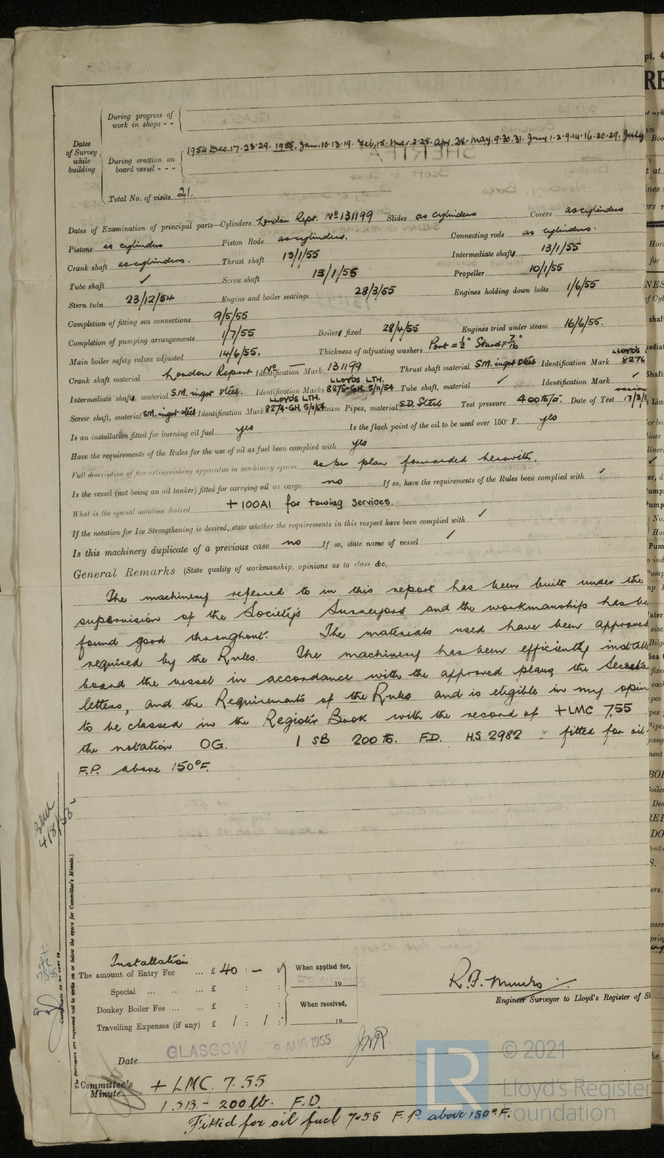 During progress of
work in shops - -
Dates
of Survey
while
building
During erection on
board vessel - - -
1954 Dec. 17. 23. 29. 1955. Jan. 10. 13. 19. Feb. 15. Mar. 2. 25. Apr. 28. May. 9. 30. 31. June 1. 2. 9. 14. 16. 20. 29. July
Total No. of visits 21.
Dates of Examination of principal parts—Cylinders London Rept. No 131199 Slides as cylinders Covers as cylinders
Pistons as cylinders Piston Rods as cylinders. Connecting rods as cylinders.
Crank shaft as cylinders. Thrust shaft 13/1/55 Intermediate shafts 13/1/55
Tube shaft ✓ Screw shaft 13/1/55 Propeller 10/1/55
Stern tube 23/12/54 Engine and boiler seatings 28/3/55 Engines holding down bolts 1/6/55
Completion of fitting sea connections 9/5/55
Completion of pumping arrangements 1/7/55 Boilers fixed 28/4/55 Engines tried under steam 16/6/55.
Main boiler safety valves adjusted 14/6/55. Thickness of adjusting washers Port = ½" Starbd 7/16"
Crank shaft material London Report No Identification Mark 131199 Thrust shaft material S.M. ingot steel Identification Mark LLOYDS 8276
Intermediate shafts, material S.M. ingot steel. Identification Marks LLOYDS LTH. 8275-GH. 5/11/54 Tube shaft, material ✓ Identification Mark ✓
Screw shaft, material S.M. ingot steel Identification Mark LLOYDS LTH. 8274-GH. Steam Pipes, material S.D. Steel Test pressure 400 lb/□". Date of Test
Is an installation fitted for burning oil fuel yes Is the flash point of the oil to be used over 150° F. yes
Have the requirements of the Rules for the use of oil as fuel been complied with yes
Full description of fire extinguishing apparatus in machinery spaces as per plan forwarded herewith.
Is the vessel (not being an oil tanker) fitted for carrying oil as cargo. no If so, have the requirements of the Rules been complied with ✓
What is the special notation desired + 100A1 for towing services.
If the notation for Ice Strengthening is desired, state whether the requirements in this respect have been complied with ✓
Is this machinery duplicate of a previous case no If so, state name of vessel ✓
General Remarks (State quality of workmanship, opinions as to class &c.
The machinery referred to in this report has been built under the
supervision of the Society's Surveyors and the workmanship has be
found good throughout. The materials used have been approved
required by the Rules. The machinery has been efficiently install
board the vessel in accordance with the approved plans, the Secreta
letters, and the Requirements of the Rules and is eligible in my opin
to be classed in the Register Book with the record of + LMC 7.55
the notation OG. 1 SB 200 lb. F.D. HS 2982 - fitted for oil
F.P. above 150°F.
Installation
The amount of Entry Fee ... £ 40 : - : When applied for,
Special ... ... ... £ : : 19
Donkey Boiler Fee ... £ : : When received,
Travelling Expenses (if any) £ 1 : 1 : 19
R. F. Munro
Engineer Surveyor to Lloyd's Register of S
Date GLASGOW 9 AUG 1955
Committee's
Minute
+ LMC. 7.55
1 SB - 200 lb. F.D.
Fitted for oil fuel 7.55 F.P. above 150°F.
LR © 2021
Lloyd's Register
Foundation